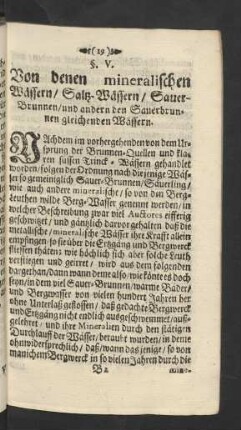 (19)
§. V.
Von denen mineralischen
Wässern / Saltz-Wässern / Sauer-
Brunnen / und andern den Sauerbrun-
nen gleichenden Wässern.
NAchdem im vorhergehenden von dem Ur-
sprung der Brunnen-Quellen und kla-
ren süssen Trinck-Wässern gehandlet
worden / folgen der Ordnung nach diejenige Wäs-
ser so gemeiniglich Sauer-Brunnen / Säuerling /
wie auch andere mineralische / so von den Berg-
leuthen wilde Berg-Wässer genennt werden / in
welcher Beschreibung zwar viel Auctores eifferig
geschwitzet / und gäntzlich darvor gehalten: daß die
metalische / mineralische Wässer ihre Krafft allein
empfingen / so sie über die Ertzgäng und Bergwerck
fliessen thäten; wie höchlich sich aber solche Leuth
verstiegen und geirret / wird aus dem folgenden
dargethan / dann wann deme also / wie könte es doch
seyn / in dem viel Sauer-Brunnen / warme Bäder /
und Bergwässer von vielen hundert Jahren her
ohne Unterlaß geflossen / daß gedachte Bergwerck
und Ertzgäng nicht endlich ausgeschwemmet / auß-
geleehret / und ihre Mineralien durch den stätigen
Durchlauff der Wässer / beraubt wurden / in deme
ohnwidersprechlich / daß / wann das jenige / so von
manichem Bergwerck in so vielen Jahren durch die
B 2